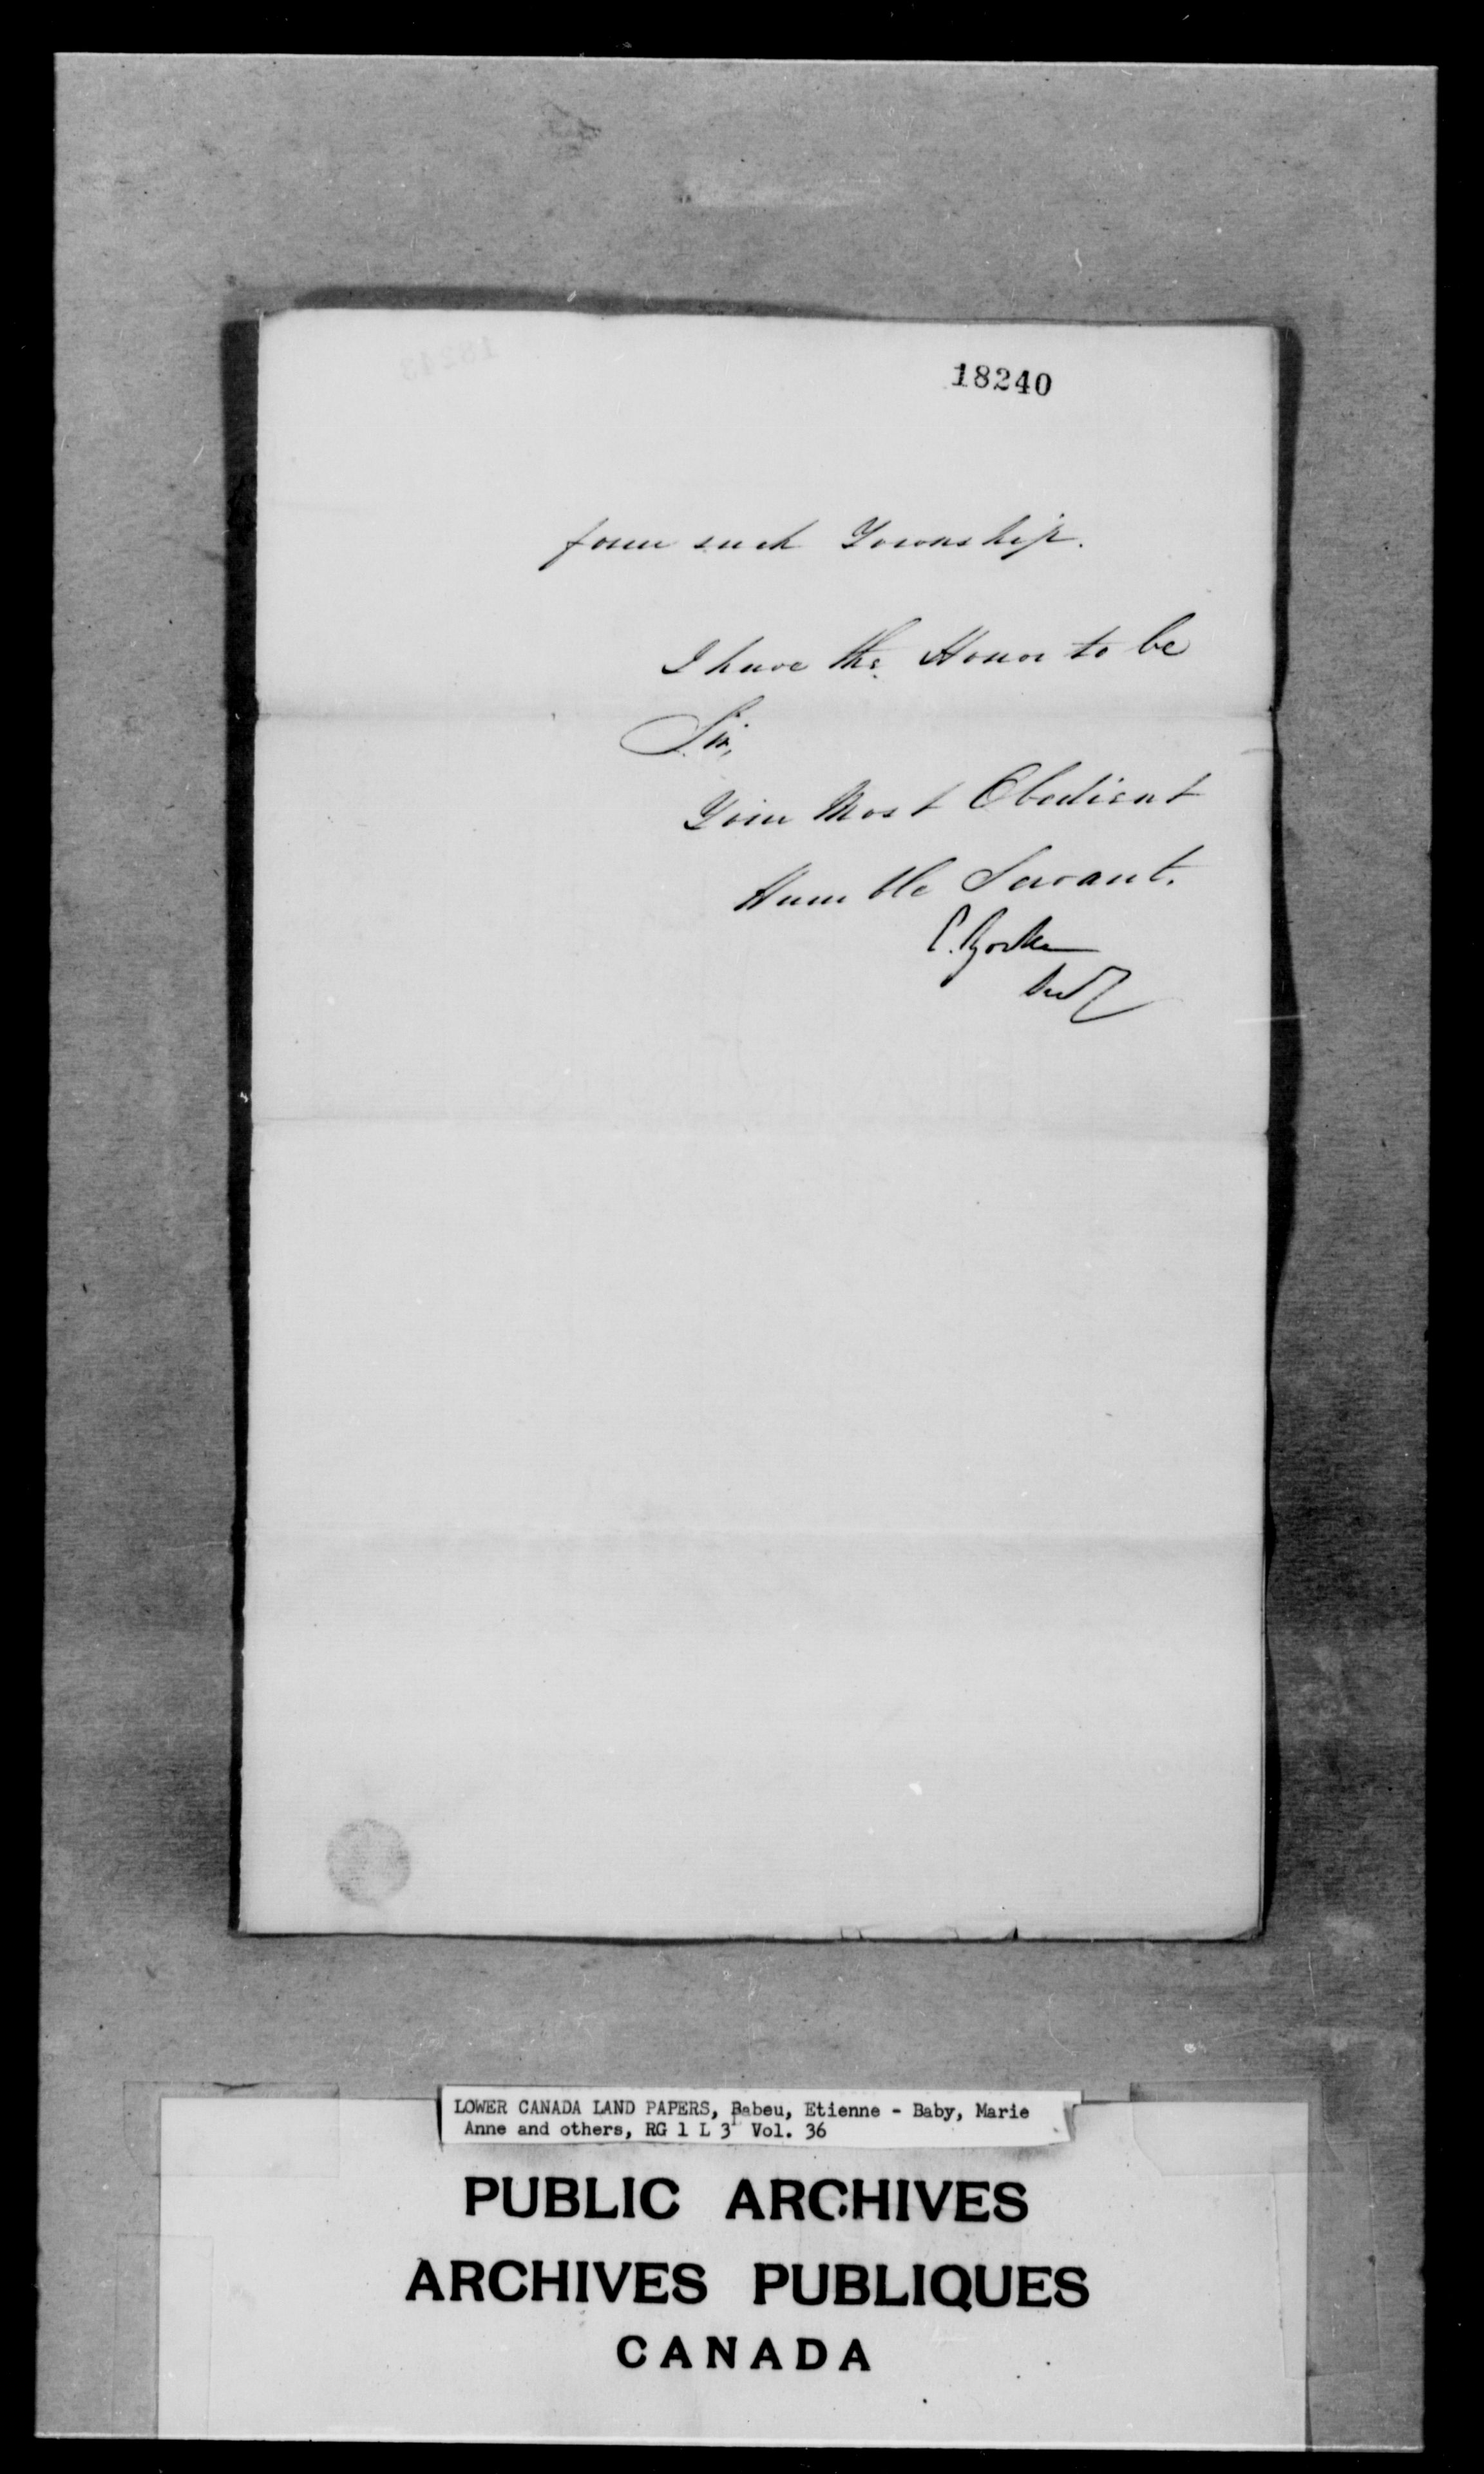 18240
form such Township.
I have the Honor to be
Sir,
Your Most Obedient
Humble Servant.
C. Yorke
LOWER CANADA LAND PAPERS, Babeu, Etienne - Baby, Marie
Anne and others, RG 1 L 3L Vol. 36
PUBLIC ARCHIVES
ARCHIVES PUBLIQUES
CANADA